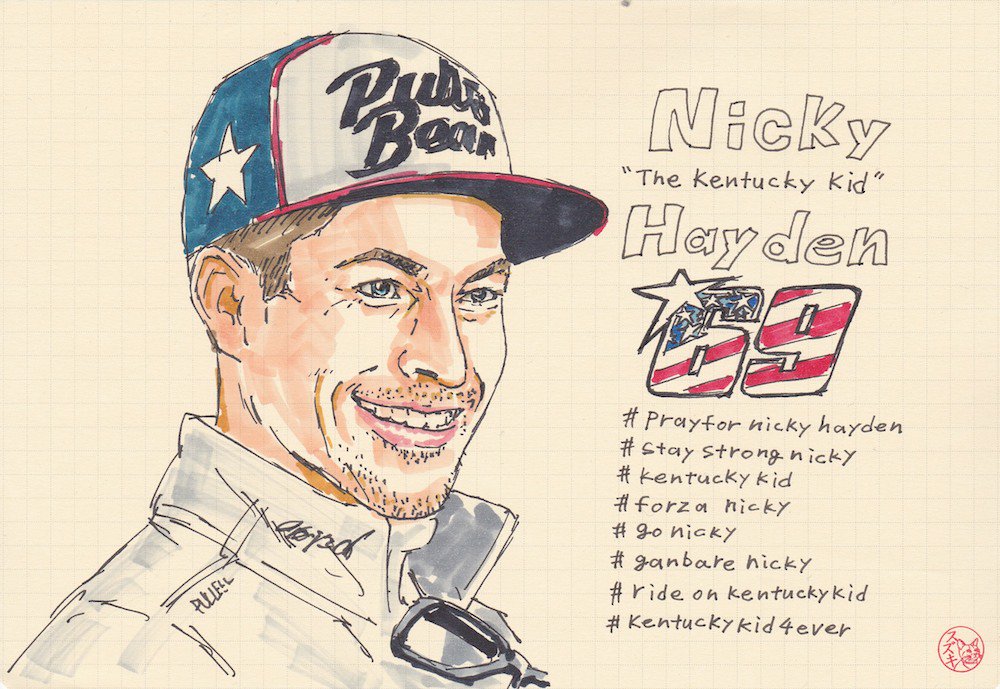 Pull&
Bear
Nicky
"The Kentucky Kid"
Hayden
69
# prayfor nicky hayden
# stay strong nicky
# kentucky kid
# forza nicky
# go nicky
# ganbare nicky
# ride on kentuckykid
# kentuckykid4ever
スズキ